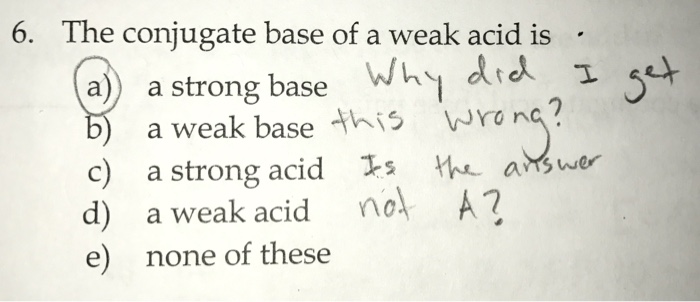 6. The conjugate base of a weak acid is .
a) a strong base Why did I get
b) a weak base this wrong?
c) a strong acid Is the answer
d) a weak acid not A?
e) none of these